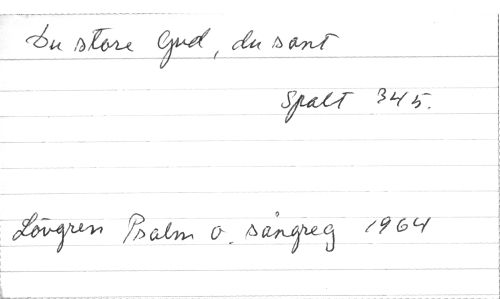 Du store Gud, du sant
Spalt 345.
Lövgren Psalm o. sångreg 1964